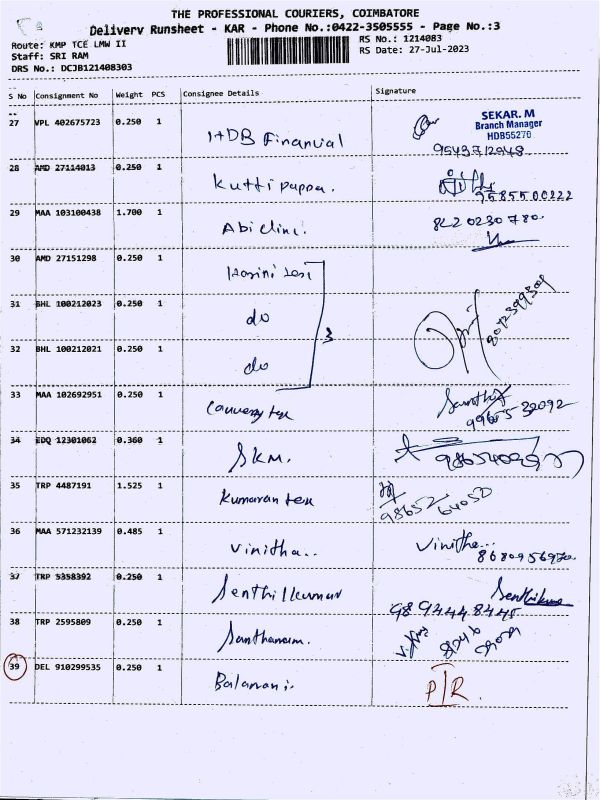 THE PROFESSIONAL COURIERS, COIMBATORE
Delivery Runsheet - KAR - Phone No.:0422-3505555 - Page No.:3
Route: KMP TCE LMW II
RS No.: 1214083
Staff: SRI RAM
RS Date: 27-Jul-2023
DRS No.: DCJB121408303
S No Consignment No Weight PCS Consignee Details Signature
27 VPL 402675723 0.250 1 HDB Financial
SEKAR. M
Branch Manager
HDB55270
28 AMD 27114013 0.250 1 Kuttipappa.
9585500222
29 MAA 103100438 1.700 1
8220230780.
30 AMD 27151298 0.250 1 Harini
31 BHL 100212023 0.250 1 do
3
32 BHL 100212021 0.250 1 do
33 MAA 102692951 0.250 1 Santhi
9965532092
34 EDQ 12301062 0.360 1 SKM.
35 TRP 4487191 1.525 1 Kumaran tex
98652 64052
36 MAA 571232139 0.485 1 Vinitha.. Vinitha...
37 TRP 5358392 0.250 1 Senthilkumar Senthilkumar
9894448445
38 TRP 2595809 0.250 1 Santhanam.
39 DEL 910299535 0.250 1 Balamani. P/R.